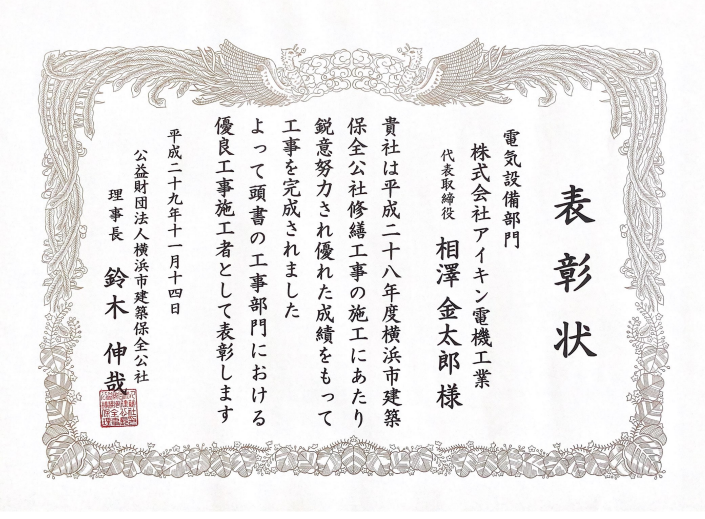 表彰状
電気設備部門
株式会社アイキン電機工業
代表取締役 相澤 金太郎 様
貴社は平成二十八年度横浜市建築
保全公社修繕工事の施工にあたり
鋭意努力され優れた成績をもって
工事を完成されました
よって頭書の工事部門における
優良工事施工者として表彰します
平成二十九年十一月十四日
公益財団法人横浜市建築保全公社
理事長 鈴木 伸哉